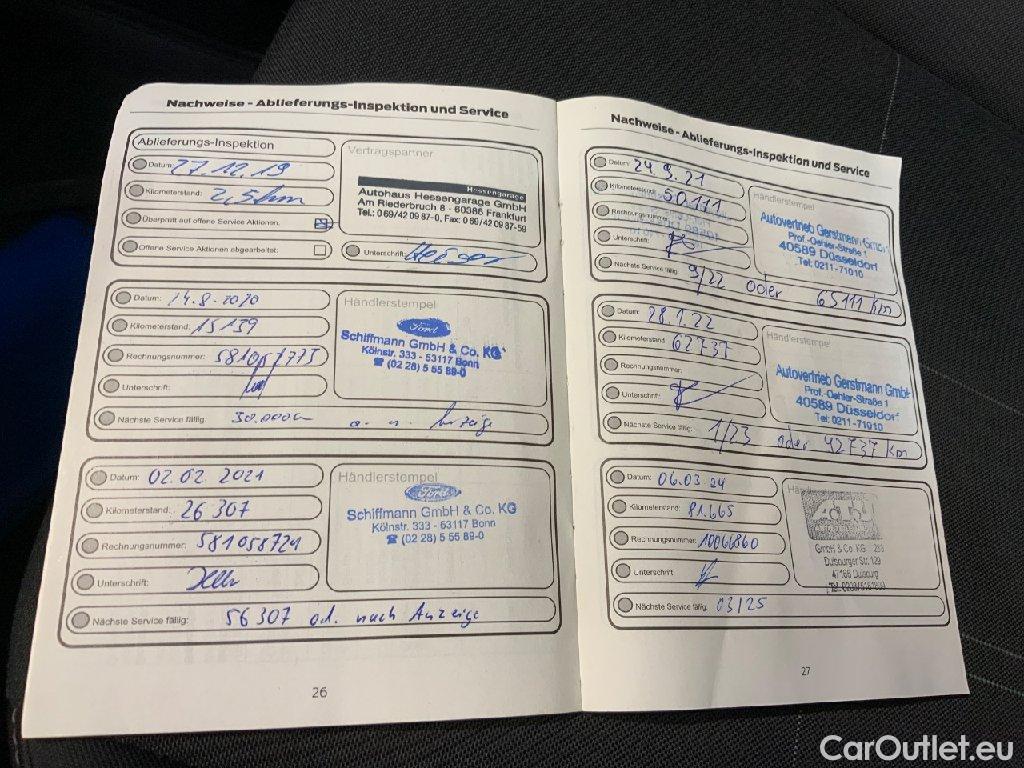 Nachweise - Ablieferungs-Inspektion und Service
Ablieferungs-Inspektion
Datum: 27.12.19
Kilometerstand: 2,5km
Überprüft auf offene Service Aktionen:
Offene Service Aktionen abgearbeitet:
Vertragspartner
Hessengarage
Autohaus Hessengarage GmbH
Am Riederbruch 8 - 60386 Frankfurt
Tel.: 0 69/42 09 87-0, Fax: 0 69/42 09 87-59
Unterschrift:
Datum: 14.8.2020
Kilometerstand: 15139
Rechnungsnummer:
Unterschrift:
Nächste Service fällig: 30.000
Händlerstempel
Ford
Schiffmann GmbH & Co. KG
Kölnstr. 333 - 53117 Bonn
☎ (02 28) 5 55 89-0
Datum: 02.02.2021
Kilometerstand: 26307
Rechnungsnummer: 581058721
Unterschrift:
Nächste Service fällig: 56307 od. nach Anzeige
Händlerstempel
Ford
Schiffmann GmbH & Co. KG
Kölnstr. 333 - 53117 Bonn
☎ (02 28) 5 55 89-0
26
Nachweise - Ablieferungs-Inspektion und Service
Datum: 24.9.21
Kilometerstand: 50111
Rechnungsnummer:
Unterschrift:
Nächste Service fällig: 9/22 oder 65111 Km
Händlerstempel
Autovertrieb Gerstmann GmbH
Prof.-Oehler-Straße 1
40589 Düsseldorf
Tel: 0211-71010
Datum: 28.1.22
Kilometerstand: 62737
Rechnungsnummer:
Unterschrift:
Nächste Service fällig: 1/23 oder 92737 Km
Händlerstempel
Autovertrieb Gerstmann GmbH
Prof.-Oehler-Straße 1
40589 Düsseldorf
Tel: 0211-71010
Datum: 06.03.24
Kilometerstand: 81.665
Rechnungsnummer: 10066860
Unterschrift:
Nächste Service fällig: 03/25
GmbH & Co. KG
Duisburger Str. 129
47166 Duisburg
27
CarOutlet.eu